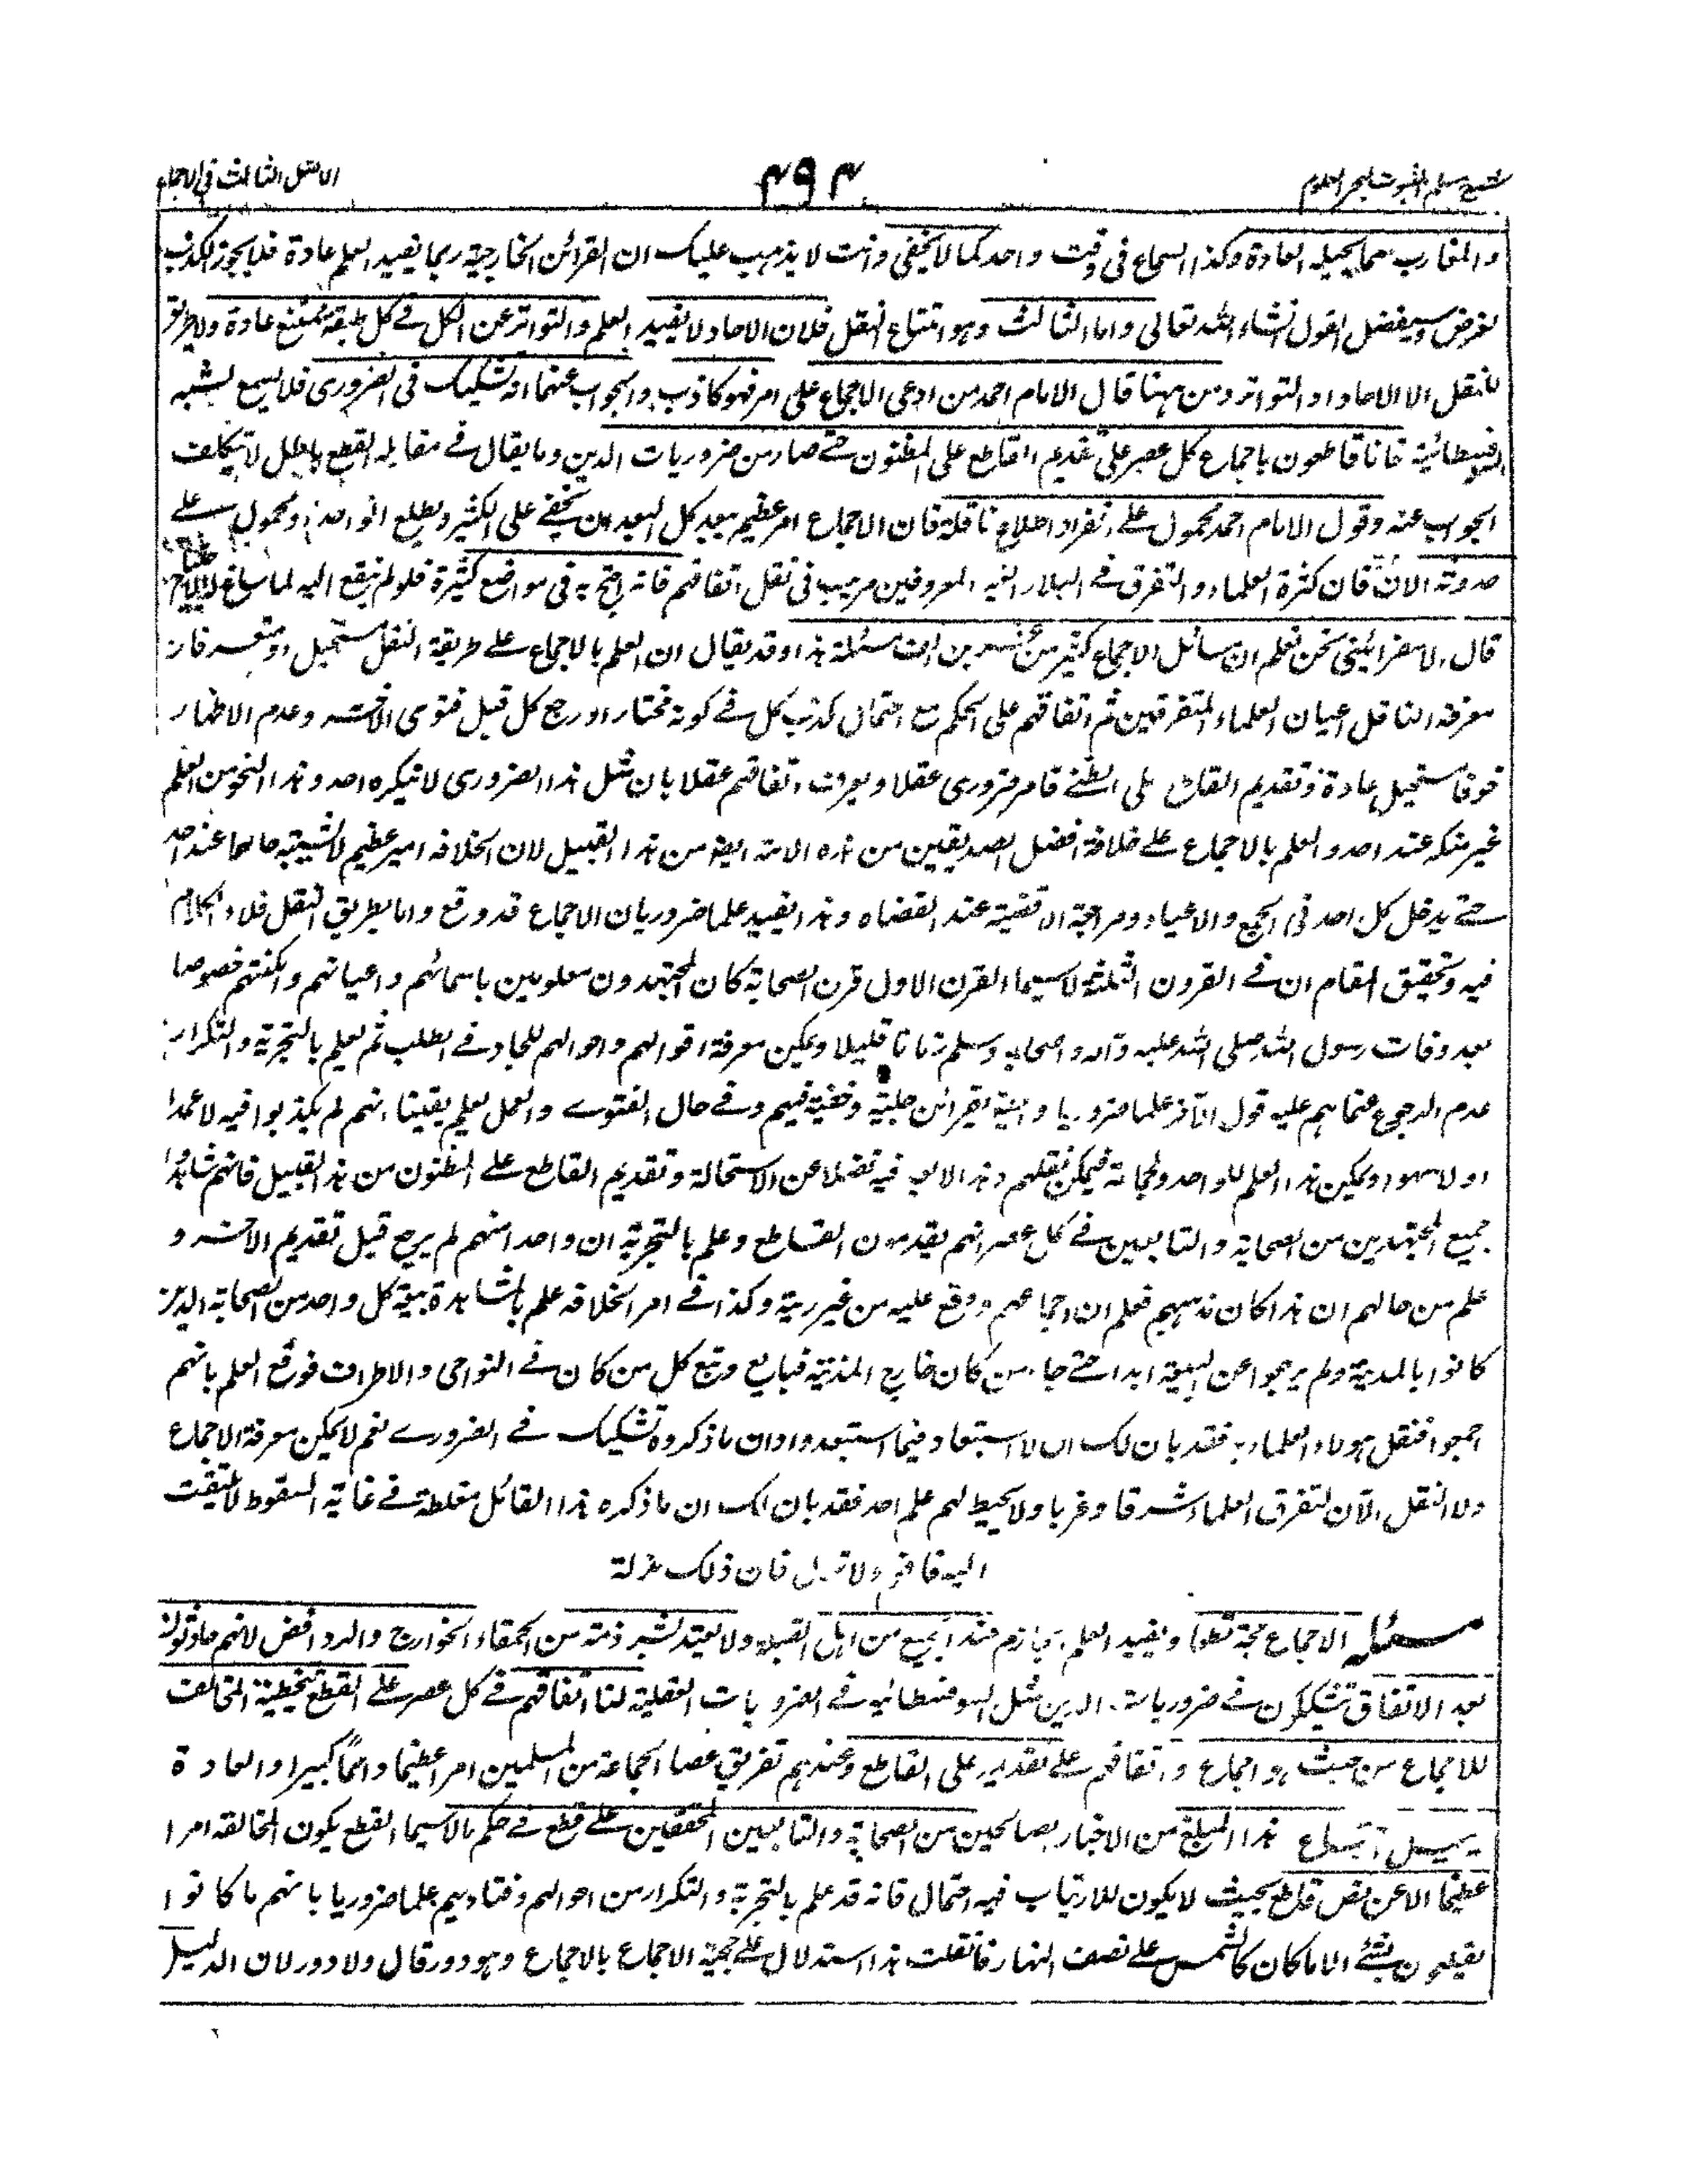 شرح مسلم الثبوت لبحر العلوم
۴۹۴
الاصل الثالث فی الاجماع
والمغارب مما یحیله العادة وکذا السماع فی وقت واحد کما لا یخفی وانت لا یذهب علیک ان القرائن الخارجیة ربما یفید العلم عادة فلا یجوز الکذب
لغرض وسیفضل القول انشاء الله تعالی واما الثالث وهو امتناع النقل فلان الاحاد لا یفید العلم والتواتر عن الکل فے کل طبقة ممتنع عادة ولا طریق
للنقل الا الاحاد او التواتر ومن ههنا قال الامام احمد من ادعی الاجماع علی امر فهو کاذب والجواب عنهما انه تشکیک فی الضروری فلا یسمع کشبه
السوفسطائیة فانا قاطعون باجماع کل عصر علی تقدیم القاطع علی المظنون حتے صار من ضروریات الدین وما یقال فے مقابلة القطع باطل لا یتکلف
الجواب عنه وقول الامام احمد محمول علے انفراد اطلاع ناقله فان الاجماع امر عظیم یبعد کل البعد ان یخفے علی الکثیر ویطلع الواحد او محمول علے
حدوثه الان فان کثرة العلماء والتفرق فے البلاد الغیر المعروفین مریب فی نقل اتفاقهم فانه احتج به فی مواضع کثیرة فلو لم یقع الیه لما ساغ
قال الاسفرائینی نحن نعلم ان مسائل الاجماع کثیر من عشرین الف مسئلة هذا وقد یقال ان العلم بالاجماع علے طریقة النقل مستحیل او متعسر فان
معرفة الناقل اعیان العلماء المتفرقین ثم اتفاقهم علی الحکم مع احتمال کذب کل فے کونه مختارا و رجع کل قبل فتوی الاخر وعدم الاظهار
خوفا مستحیل عادة وتقدیم القاطع علی الظنے فامر ضروری عقلا ویعرف اتفاقهم عقلا بان مثل هذا الضروری لا ینکره احد وهذا النحو من العلم
غیر منکر عند احد والعلم بالاجماع علے خلافة افضل الصدیقین من هذه الامة ایضا من هذا القبیل لان الخلافة امر عظیم لا یشتبه حالها عند احد
حتے یدخل کل احد فی الجمع والاعیاد ومراجعة الاقضیة عند القضاه وهذا یفید علما ضروریا ان الاجماع قد وقع واما بطریق النقل فلا والکلام
فیه وتحقیق المقام ان فے القرون الثلثة لا سیما القرن الاول قرن الصحابة کان المجتهدون معلومین باسمائهم واعیانهم وامکنتهم خصوصا
بعد وفات رسول الله صلی الله علیه وآله واصحابه وسلم زمانا قلیلا ویمکن معرفة اقوالهم واحوالهم للجاد فے الطلب ثم یعلم بالتجربة والتکرار
عدم الرجوع عما هم علیه قول الآخر علما ضروریا وانیة بقرائن جلیة وخفیة فیهم وفے حال الفتوے والعمل یعلم یقینا انهم لم یکذبوا فیه لا عمدا
او لا سهوا ویمکن هذا العلم للواحد ولجماعة فیمکن نقلهم وهذا لا بعد فیه فضلا عن الاستحالة وتقدیم القاطع علے المظنون من هذا القبیل فانهم شاهدوا
جمیع المجتهدین من الصحابة والتابعین فے کل عصر انهم یقدمون القاطع وعلم بالتجربة ان واحدا منهم لم یرجع قبل تقدیم الاخر و
علم من حالهم ان هذا کان مذهبهم فعلم ان اجماعهم وقع علیه من غیر ریبة وکذا فے امر الخلافة علم بالمشاهدة بیعة کل واحد من الصحابة الذین
کانوا بالمدینة ولم یرجعوا عن البیعة ابدا حتے جاء من کان خارج المدینة فبایع وتبع کل من کان فے النواحی والاطراف فوقع العلم بانهم
اجمعوا فنقل هولاء العلماء به فقد بان لک ان لا استبعاد فیما استبعدوا وان ما ذکروه تشکیک فے الضرورے نعم لا یمکن معرفة الاجماع
ولا النقل الآن لتفرق العلماء شرقا وغربا ولا یحیط لهم علم احد فقد بان لک ان ما ذکره هذا القائل مغلطة فے غایة السقوط لا یلتفت
الیه فافهم ولا تزل فان ذلک مزلة
مسئله الاجماع حجة قطعا ویفید العلم الجازم عند الجمیع من اهل القبلة ولا یعتد لشرذمة من الحمقاء الخوارج والروافض لانهم حادثون
بعد الاتفاق یشککون فے ضروریات الدین مثل السوفسطائیة فے الضروریات العقلیة لنا اتفاقهم فے کل عصر علے القطع بتخطیة المخالف
للاجماع من حیث هو اجماع واتفاقهم علے تقدیمه علی القاطع وعندهم تفریق عصا الجماعة من المسلمین امرا عظیما واثما کبیرا والعادة
یحیل اجتماع هذا المبلغ من الاخیار الصالحین من الصحابة والتابعین المحققین علے قطع فے حکم ما لا سیما القطع یکون المخالفة امرا
عظیما الا عن نص قاطع بحیث لا یکون للارتیاب فیه احتمال فانه قد علم بالتجربة والتکرار من احوالهم وفتاویهم علما ضروریا بانهم ما کانوا
یقطعون بشئے الا ما کان کالشمس علے نصف النهار فان قلت هذا استدلال علے حجیة الاجماع بالاجماع وهو دور قال ولا دور لان الدلیل